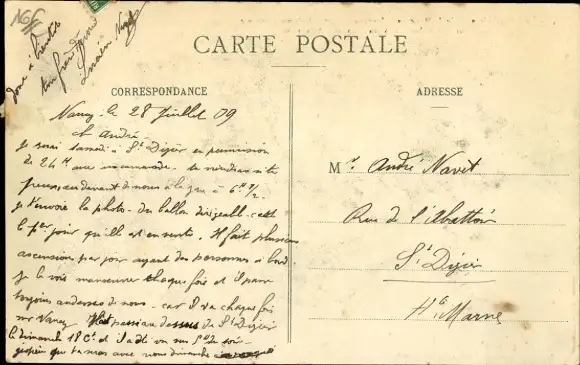 donc à bientôt
ton frère
Lucien
CARTE POSTALE
CORRESPONDANCE
ADRESSE
Nancy le 28 Juillet 09
André
Je serai samedi à St Dizier en permission
de 24 H avec un camarade. tu viendras si tu
peux au devant de nous à la gare à 6H 1/2
je t'envoie la photo du ballon dirigeable c'est
le 1er jour qu'elle est en vente. Il fait plusieurs
ascensions par jour ayant des personnes à bord.
Je le vois manœuvrer chaque fois et il passe
toujours au dessus de nous car il va chaque fois
sur Nancy Il est passé au dessus de St Dizier
le dimanche 18 Ct et il a été vu sur
que tu seras avec nous dimanche
Mr André Navet
Rue de l'Abattoir
St Dizier
Hte Marne